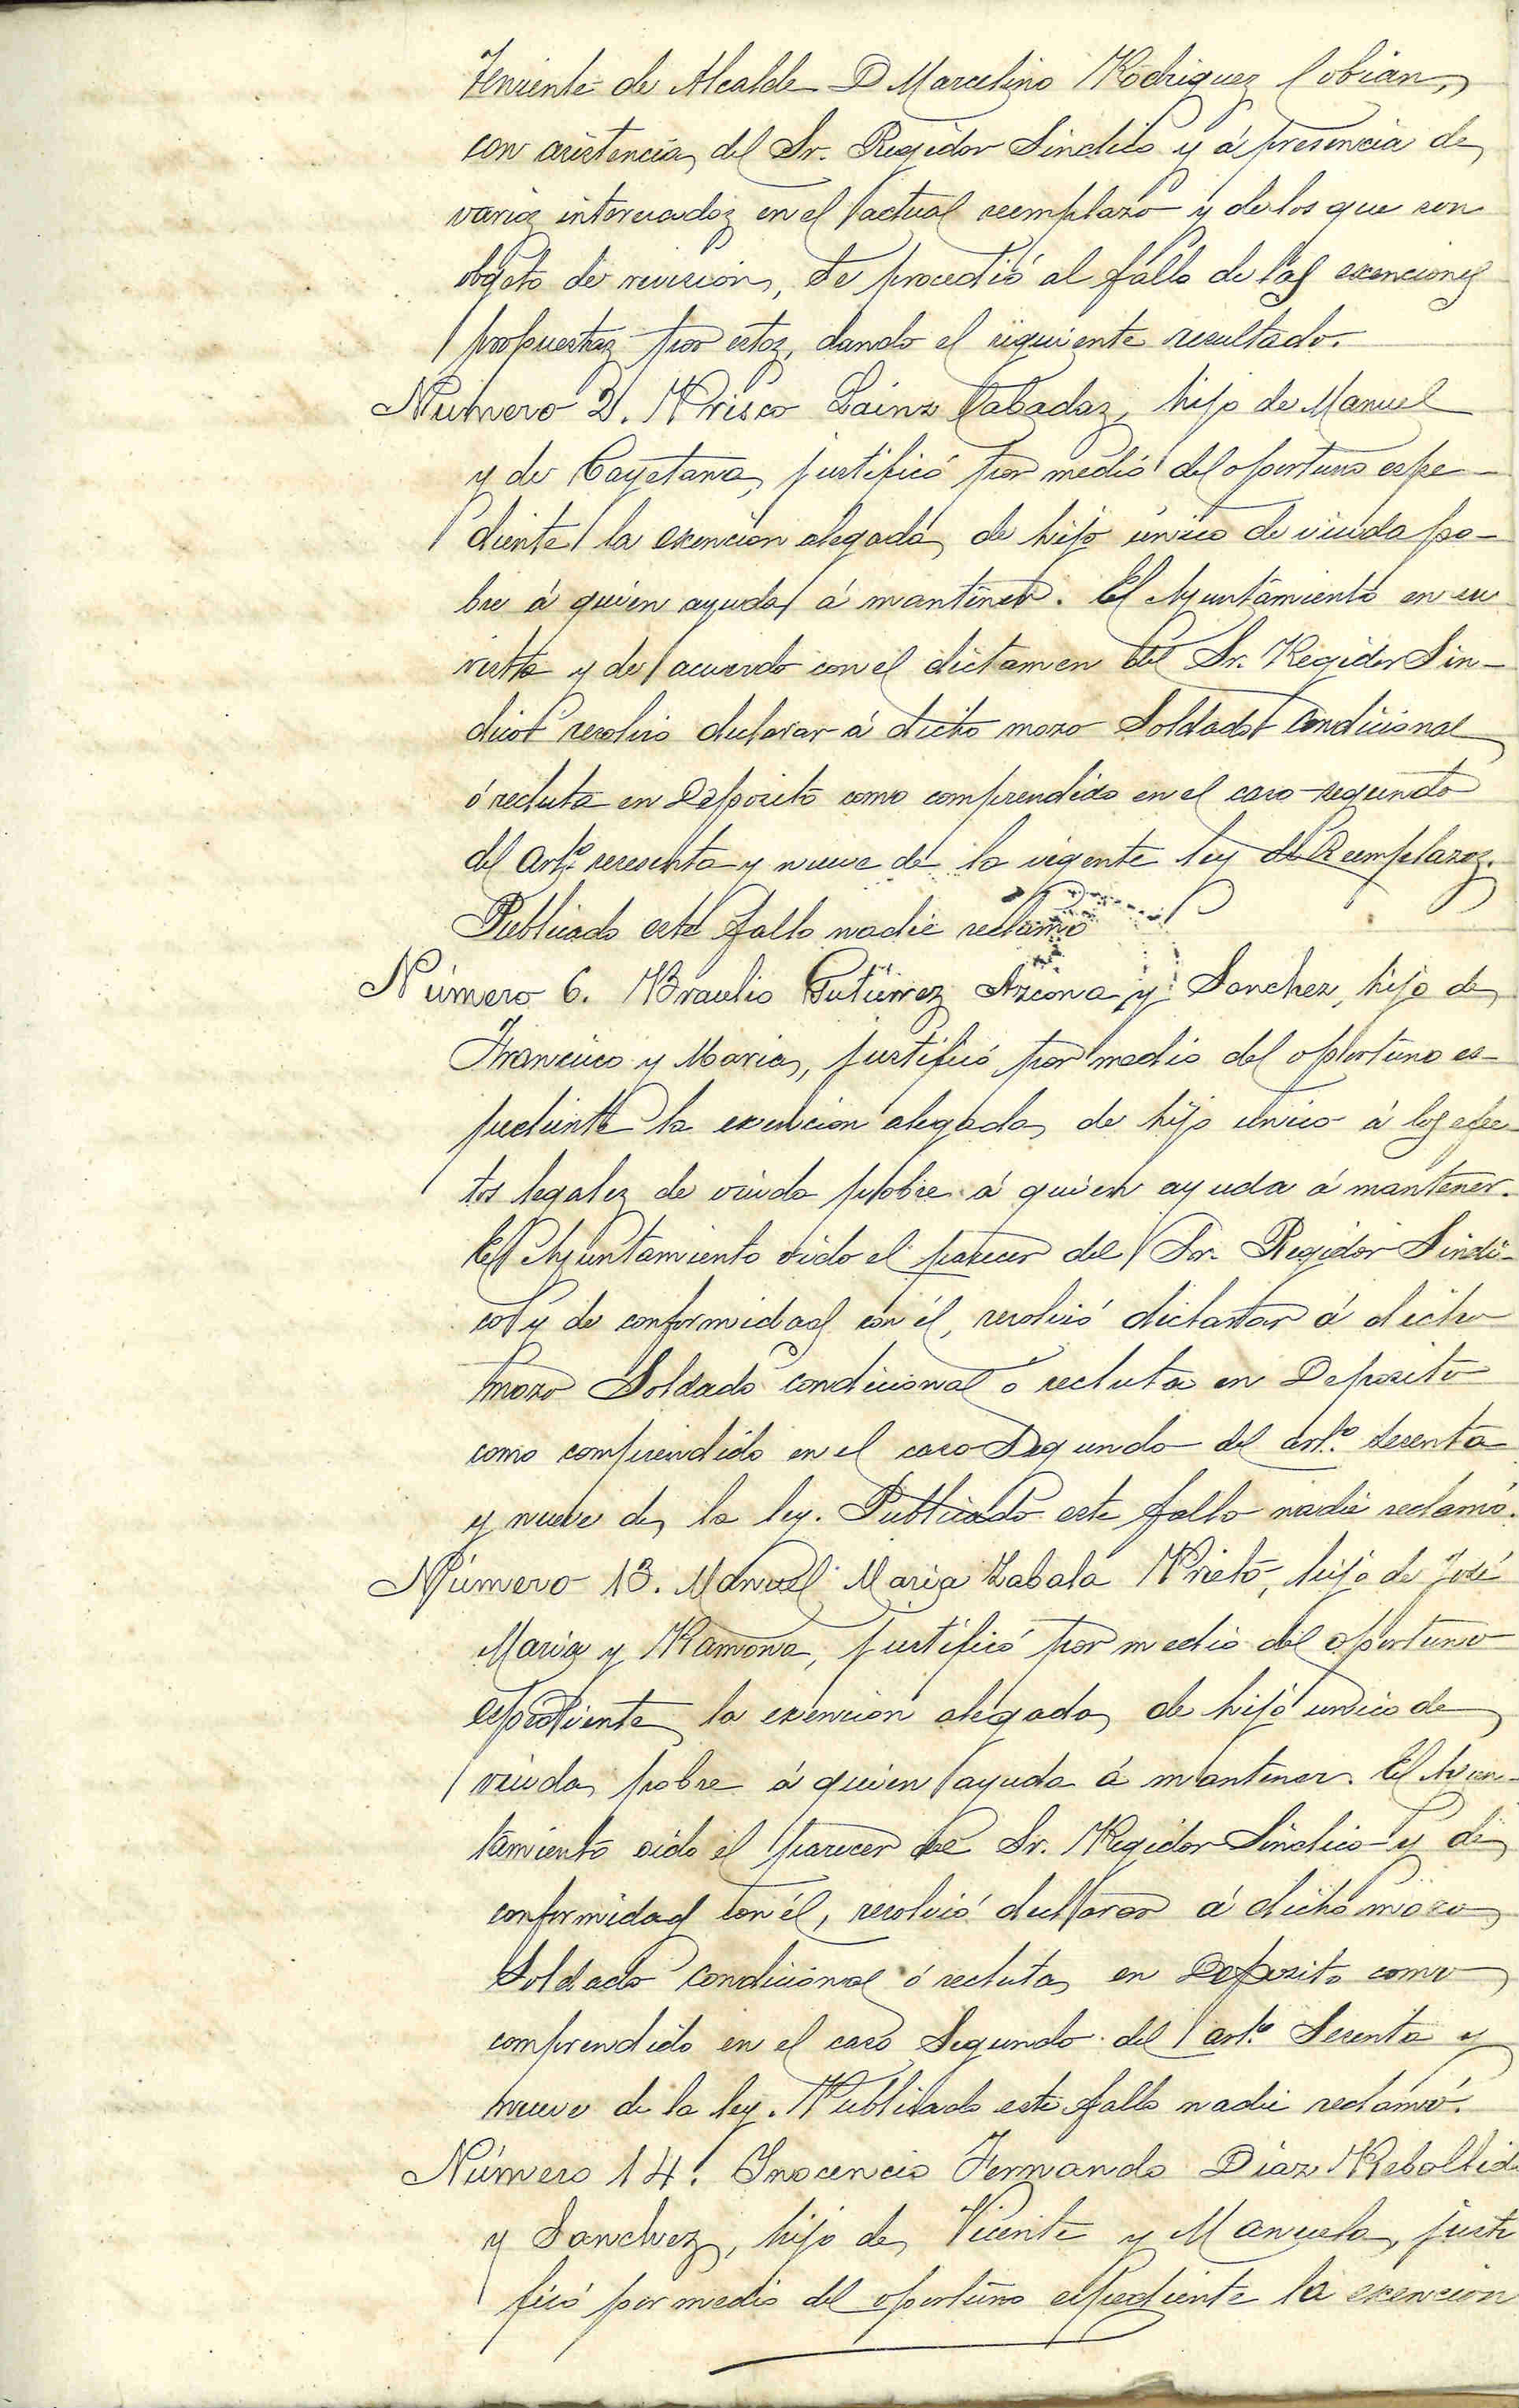 Teniente de Alcalde D Marcelino Rodriguez Cobian,
con asistencia del Sr. Regidor Sindico y á presencia de
varios interesados en el actual reemplazo y de los que son
objeto de revision, se procedió al fallo de las exenciones
propuestas por estos, dando el siguiente resultado.
Número 2. Prisco Lainz Tabadaz, hijo de Manuel
y de Cayetana, justificó por medio del oportuno espe-
diente la exencion alegada de hijo único de viuda po-
bre á quien ayuda á mantener. El Ayuntamiento en su
vista y de acuerdo con el dictamen del Sr. Regidor Sin-
dico resolvio declarar á dicho mozo Soldado Condicional
ó recluta en Depósito como comprendido en el caso segundo
del artº sesenta y nueve de la vigente ley de Reemplazos.
Publicado este fallo nadie reclamó
Número 6. Braulio Gutierrez Azcona y Sanchez, hijo de
Francisco y Maria, justificó por medio del oportuno es-
pediente la exencion alegada de hijo único á los efec-
tos legales de viuda pobre á quien ayuda á mantener.
El Ayuntamiento oido el parecer del Sr. Regidor Sindi-
co y de conformidad con él, resolvió declarar á dicho
mozo Soldado condicional ó recluta en Deposito
como comprendido en el caso Segundo del artº sesenta
y nueve de la ley. Publicado este fallo nadie reclamó.
Número 13. Manuel Maria Zabala Prieto, hijo de José
Maria y Ramona, justificó por medio del oportuno
espediente la exencion alegada de hijo unico de
viuda pobre á quien ayuda á mantener. El Ayun-
tamiento oido el parecer del Sr. Regidor Sindico y de
conformidad con él, resolvió declarar á dicho mozo
Soldado Condicional ó recluta en Deposito como
comprendido en el caso Segundo del artº Sesenta y
nueve de la ley. Publicado este fallo nadie reclamó.
Número 14. Inocencio Fernando Diaz Rebollid
y Sanchez, hijo de Vicente y Manuela, justi
ficó por medio del oportuno espediente la exencion